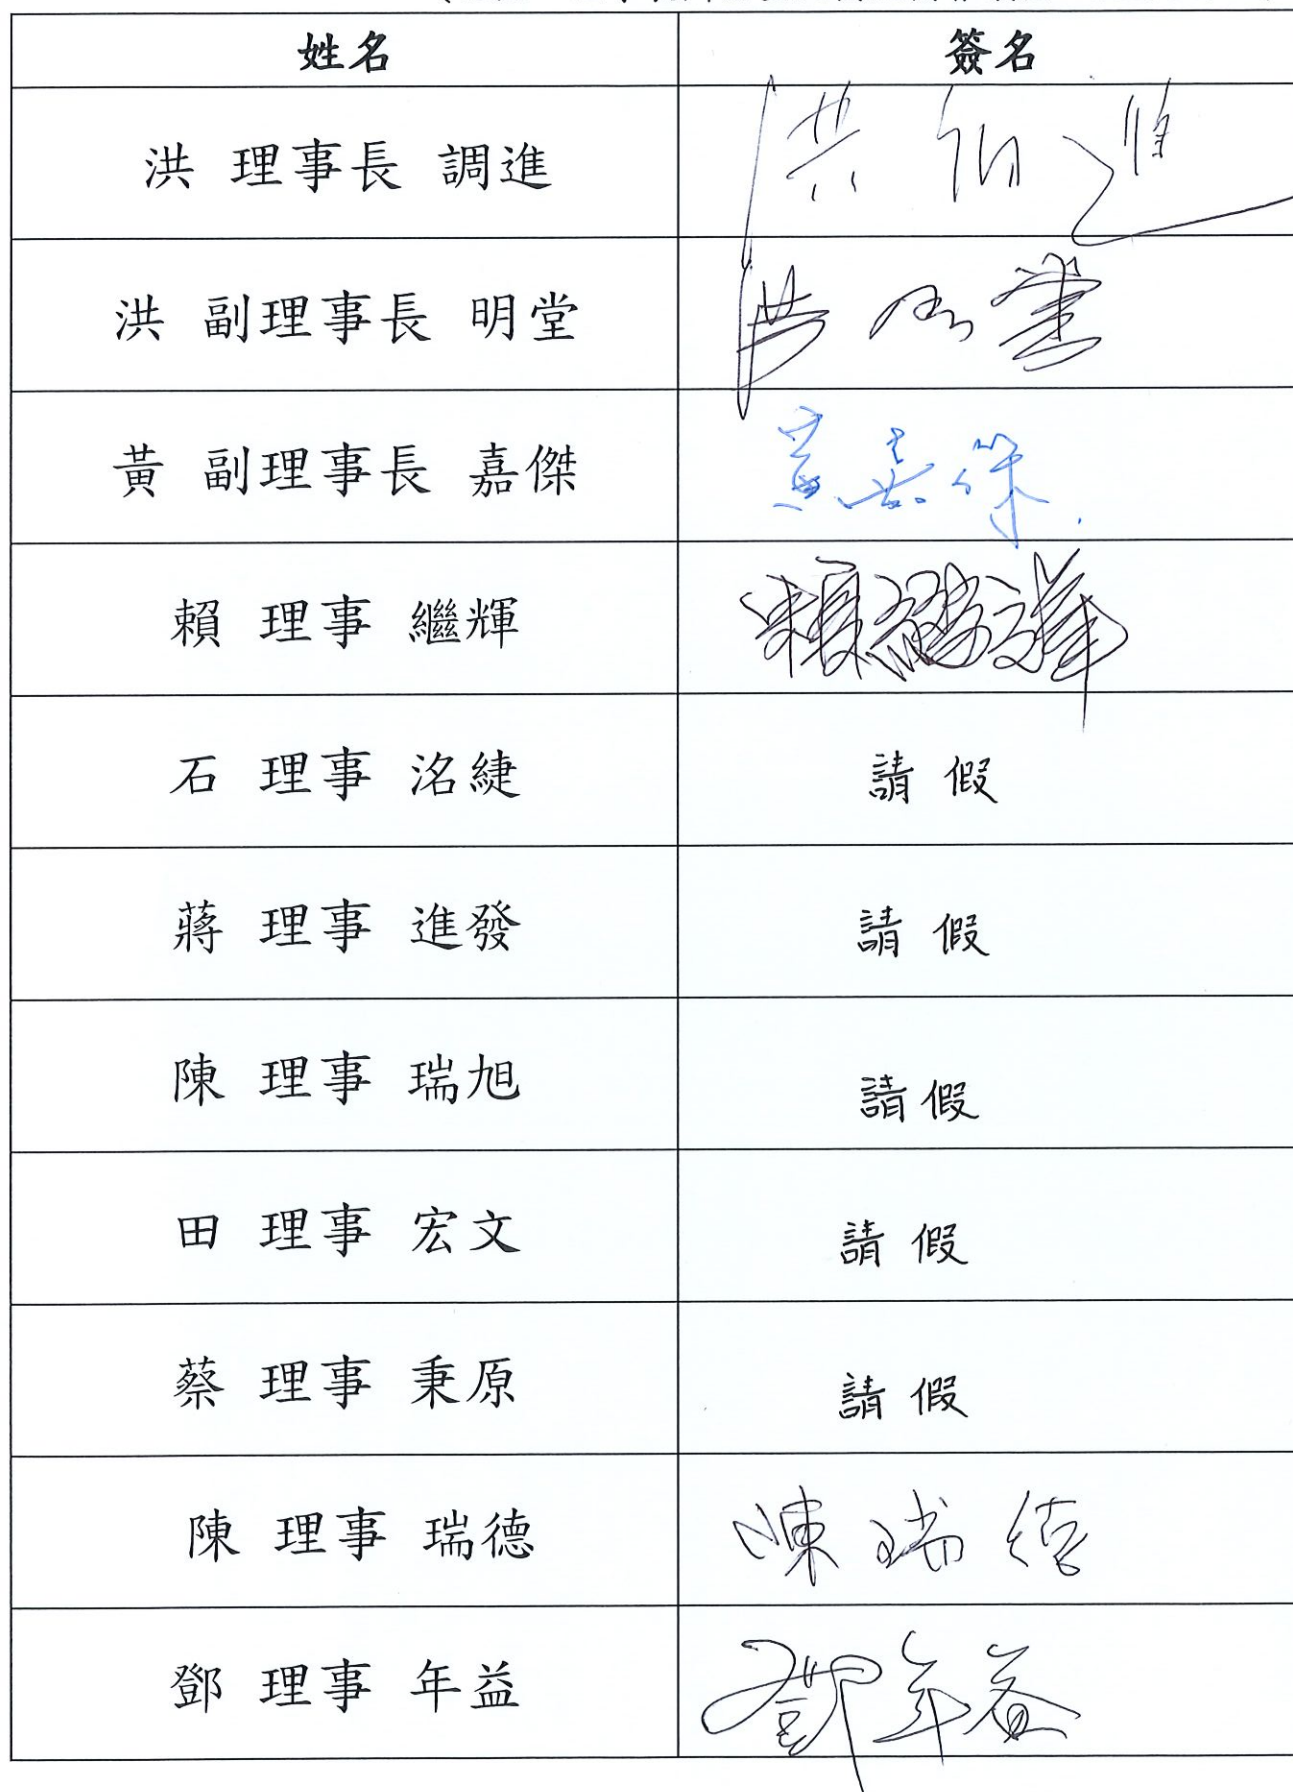 姓名 簽名
洪 理事長 調進 洪調進
洪 副理事長 明堂 洪明堂
黃 副理事長 嘉傑 黃嘉傑
賴 理事 繼輝 賴繼輝
石 理事 洺緁 請假
蔣 理事 進發 請假
陳 理事 瑞旭 請假
田 理事 宏文 請假
蔡 理事 秉原 請假
陳 理事 瑞德 陳瑞德
鄧 理事 年益 鄧年益